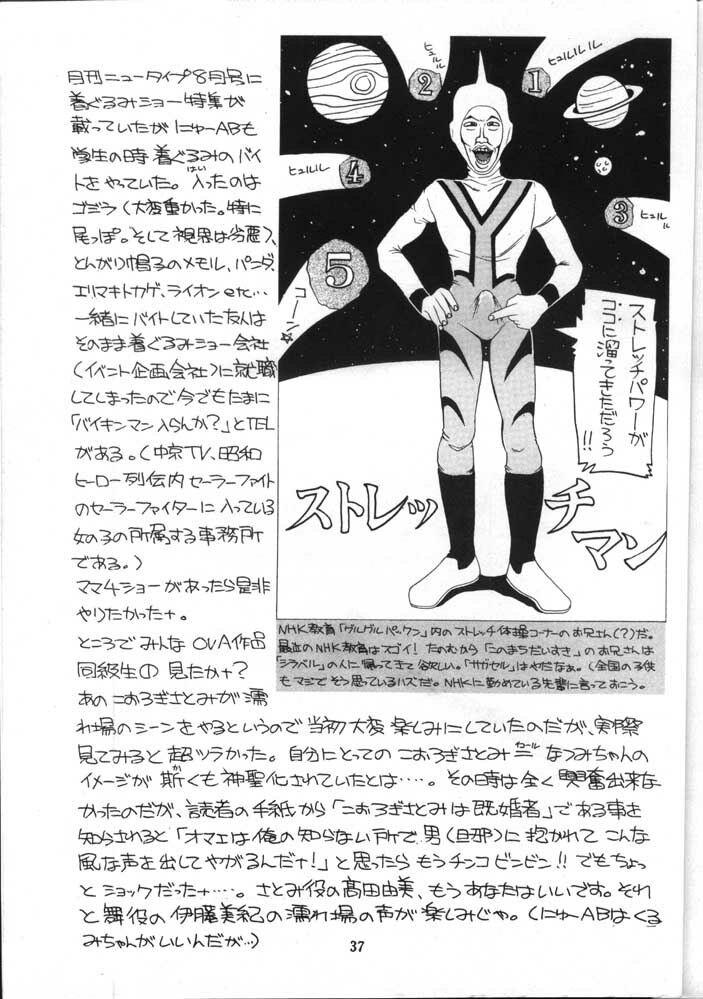 月刊ニュータイプ8月号に
着ぐるみショー特集が
載っていたがにゅーABも
学生の時着ぐるみのバイ
トをやっていた。入(はい)ったのは
ゴジラ(大変重かった。特に
尾っぽ。そして視界は劣悪)、
とんがり帽子のメモル、パンダ、
エリマキトカゲ、ライオンetc…
一緒にバイトしていた友人は
そのまま着ぐるみショー会社
(イベント企画会社)に就職
してしまったので今でもたまに
「バイキンマン入らんか?」とTEL
がある。(中京TV、昭和
ヒーロー列伝内セーラーファイト
のセーラーファイターに入っている
女の子の所属する事務所
である。)
ママ4ショーがあったら是非
やりたかったナ。
ところでみんなOVA作品
同級生の見たかナ?
あのこおろぎさとみが濡
れ場のシーンをやるというので当初大変楽しみにしていたのだが、実際
見てみると超ツラかった。自分にとってのこおろぎさとみ=(イコール)なつみちゃんの
イメージが斯(か)くも神聖化されていたとは…。その時は全く興奮出来な
かったのだが、読者の手紙から「こおろぎさとみは既婚者」である事を
知らされると「オマエは俺の知らない所で男(旦那)に抱かれてこんな
風な声を出してやがるんだナ!」と思ったらもうチンコビンビン!!でもちょっ
とショックだったナ…。さとみ役の高田由美、もうあなたはいいです。それ
と舞役の伊藤美紀の濡れ場の声が楽しみじゃ。(にゅーABはくる
みちゃんがいいんだが…)
ヒュルルル
2
1
ヒュルルル
ヒュルルル
4
3
ヒュルルル
5
コーン☆
ストレッチパワーが
ココに溜ってきただろう
!!
ストレッチマン
NHK教育「グルグルパックン」内のストレッチ体操コーナーのお兄さん(?)だ。
最近のNHK教育はスゴイ!たのむから「このまちだいすき」のお兄さんは
「シラベル」の人に帰ってきて欲しい。「サガセル」はやだなぁ。(全国の子供
もマジでそう思っているハズだ。NHKに勤めている先輩に言っておこう。
37